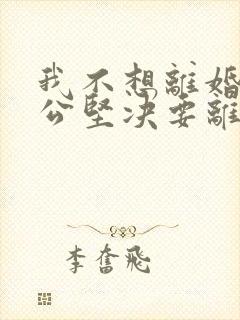 我不想離婚
公堅決要離
李奮飛